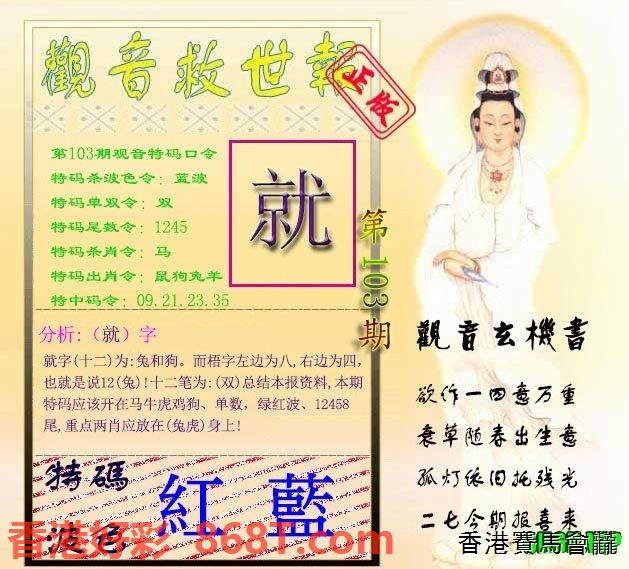 觀音救世報
正版
第103期观音特码口令
特码杀波色令: 蓝波
特码单双令: 双
特码尾数令: 1245
特码杀肖令: 马
特码出肖令: 鼠狗兔羊
特中码令: 09.21.23.35
就
第103期
分析:（就）字
就字(十二)为:兔和狗。而梧字左边为八,右边为四,
也就是说12(兔)!十二笔为:(双)总结本报资料,本期
特码应该开在马牛虎鸡狗、单数，绿红波、12458
尾,重点两肖应放在(兔虎)身上!
特碼
波色
紅 藍
香港好彩 8687.com
觀音玄機書
欲作一四意万重
衰草随春出生意
孤灯依旧托残光
二七今期报喜来
香港賽馬會